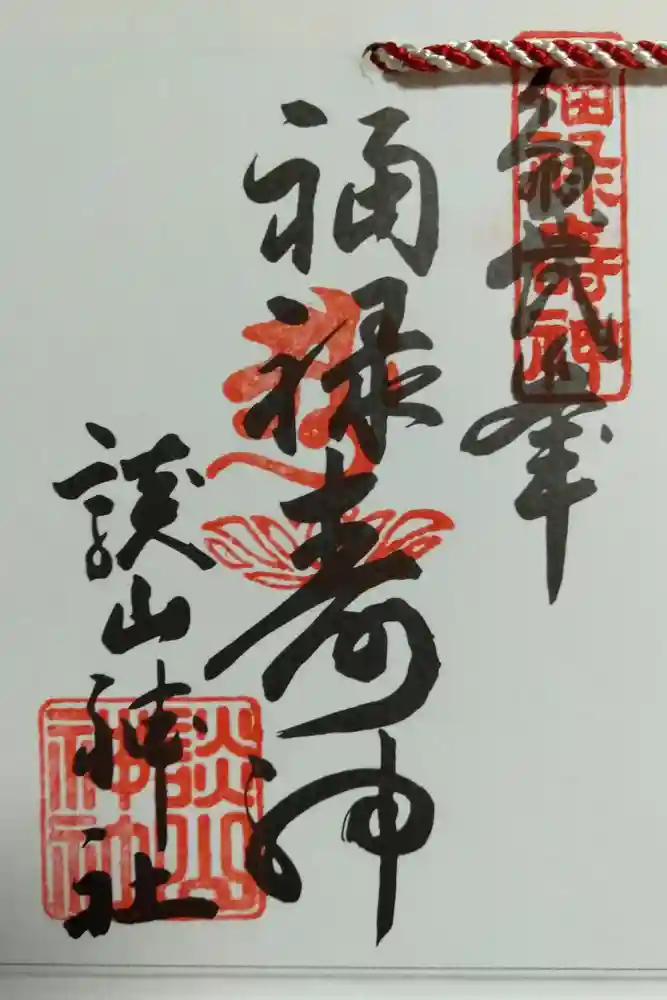 多武峯
福禄寿神
福禄寿神
談山神社
談山
神社